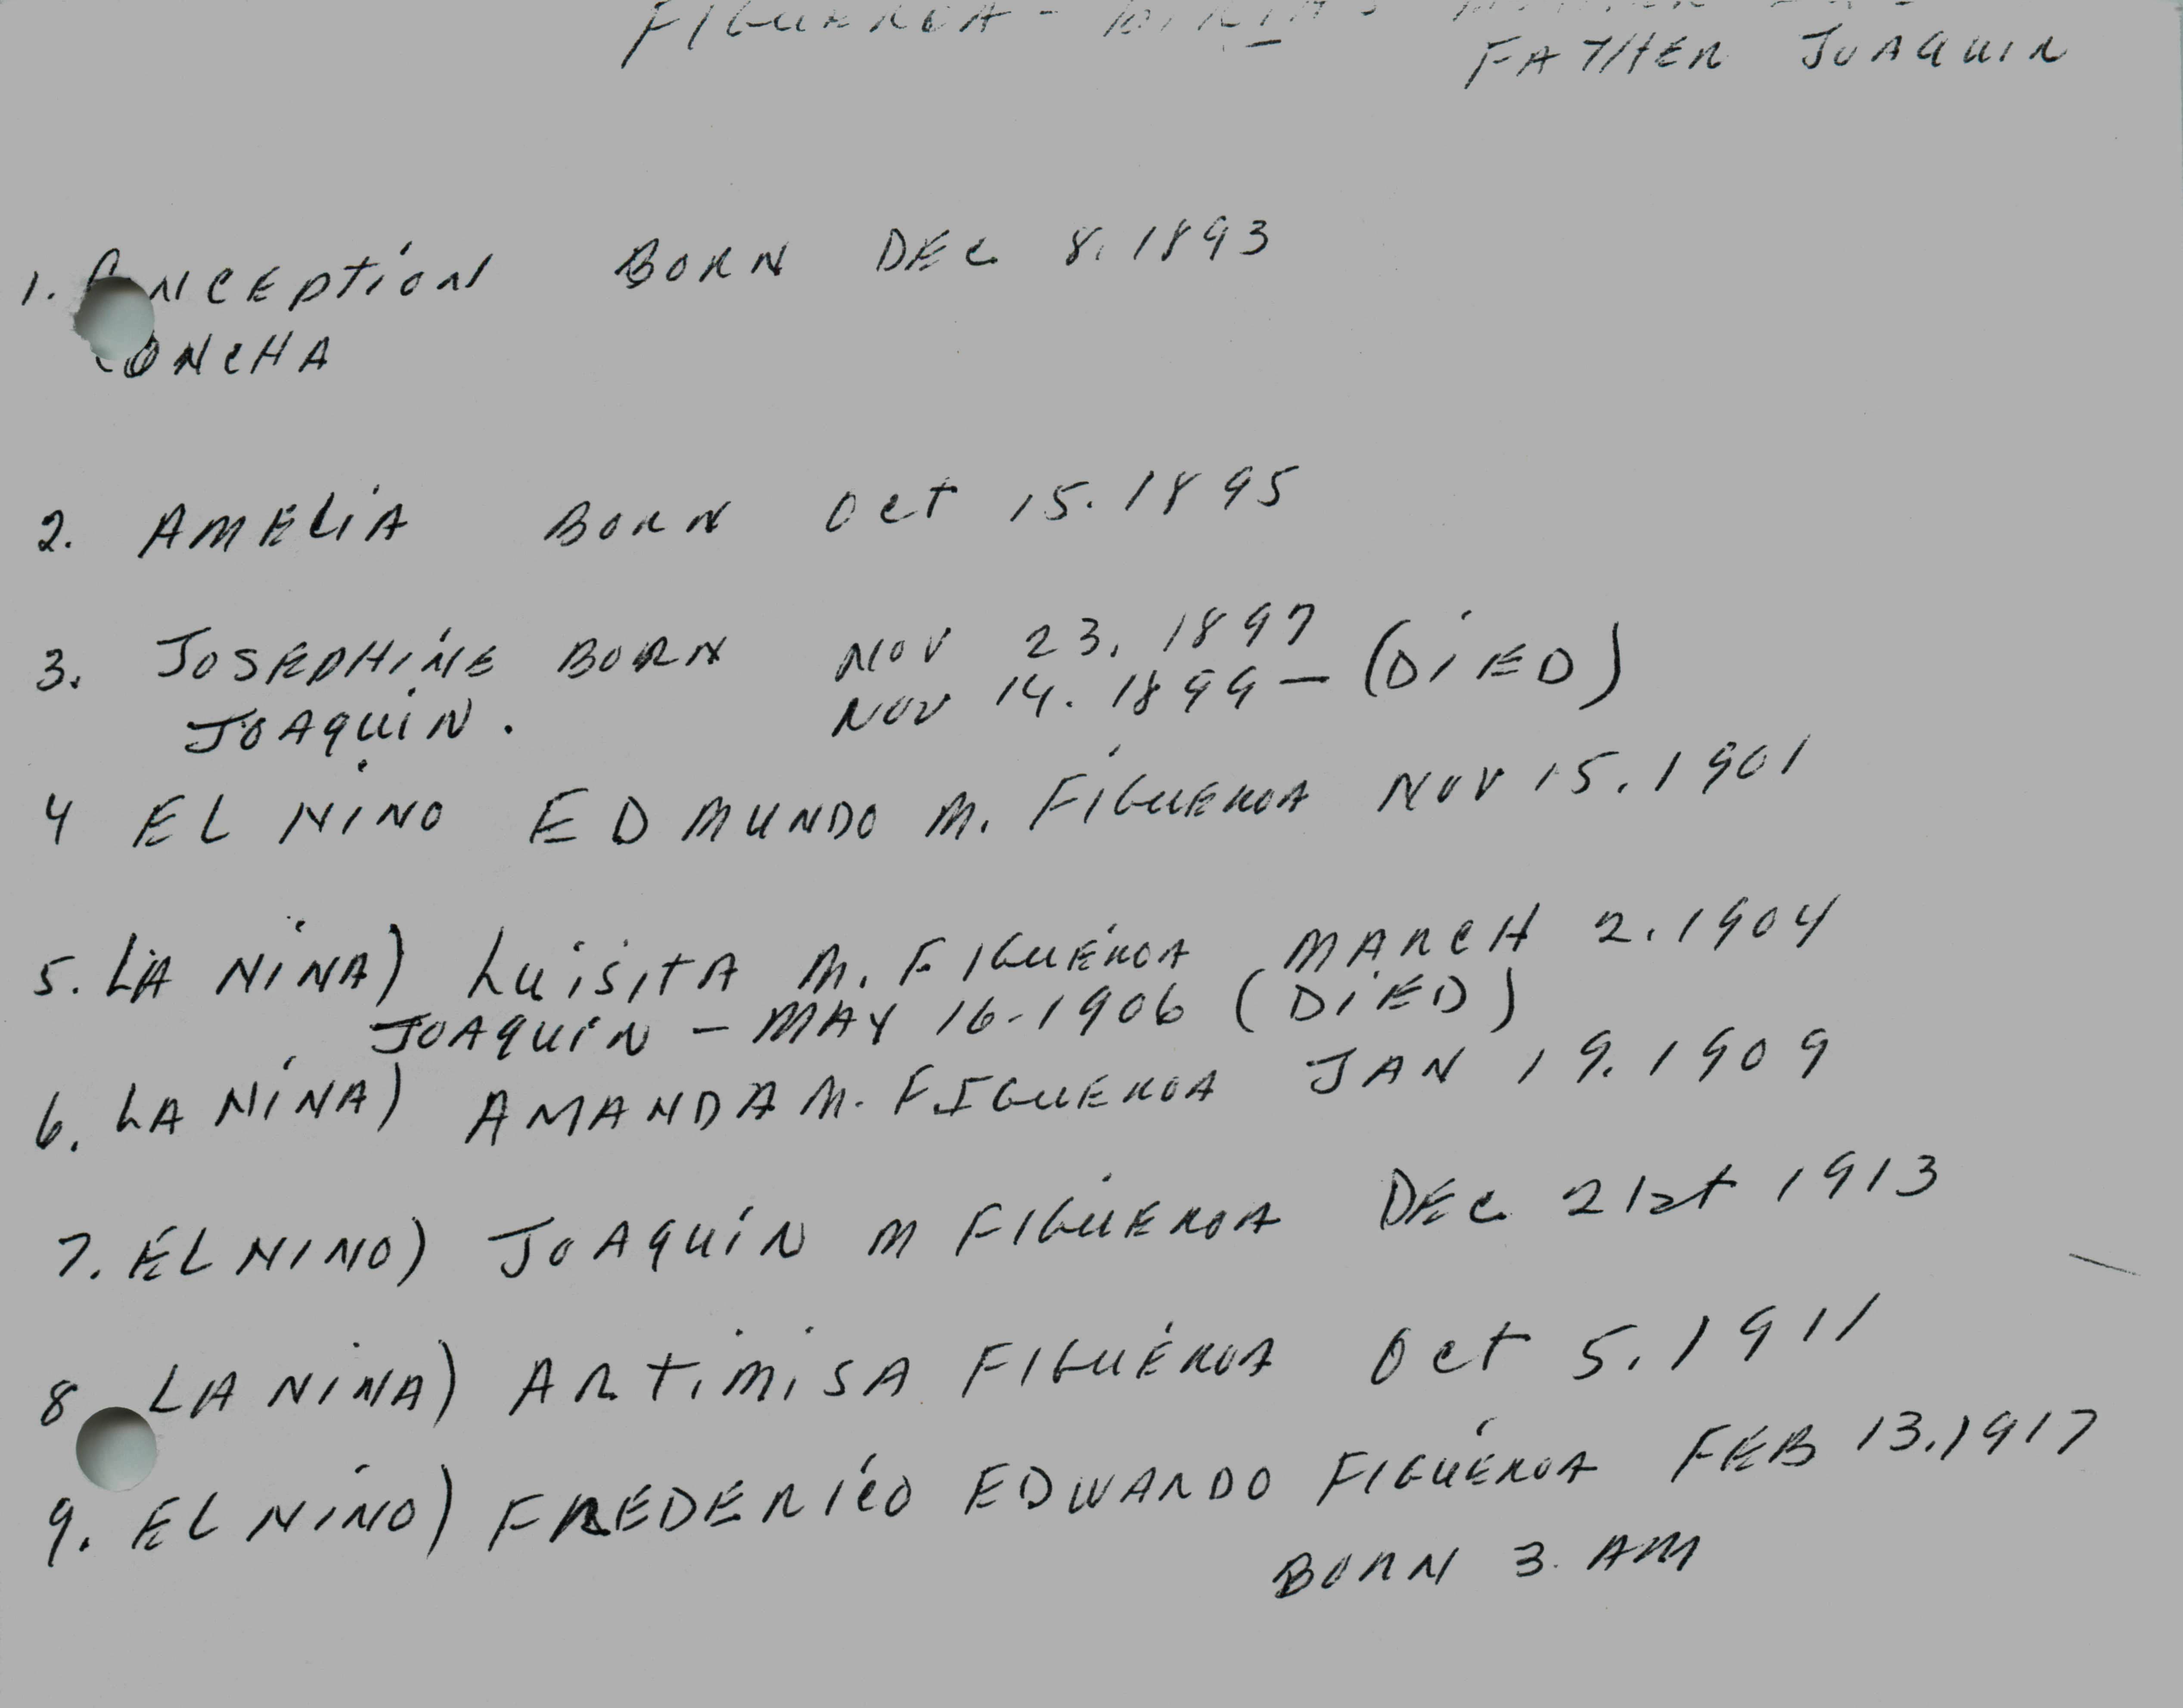 FIGUEROA - BIRTHS
FATHER JOAQUIN
1. CONCEPTION BORN DEC 8, 1893
CONCHA
2. AMELIA BORN OCT 15. 1895
3. JOSEPHINE BORN NOV 23, 1897
JOAQUIN. NOV 14. 1899 — (DIED)
4 EL NINO EDMUNDO M. FIGUEROA NOV 15, 1901
5. LA NINA) LUISITA M. FIGUEROA MARCH 2, 1904
JOAQUIN - MAY 16-1906 (DIED)
6. LA NINA) AMANDA M. FIGUEROA JAN 19. 1909
7. EL NINO) JOAQUIN M FIGUEROA DEC 21st 1913
8 LA NINA) ARTIMISA FIGUEROA OCT 5, 1911
9. EL NINO) FREDERICO EDWARDO FIGUEROA FEB 13, 1917
BORN 3. AM